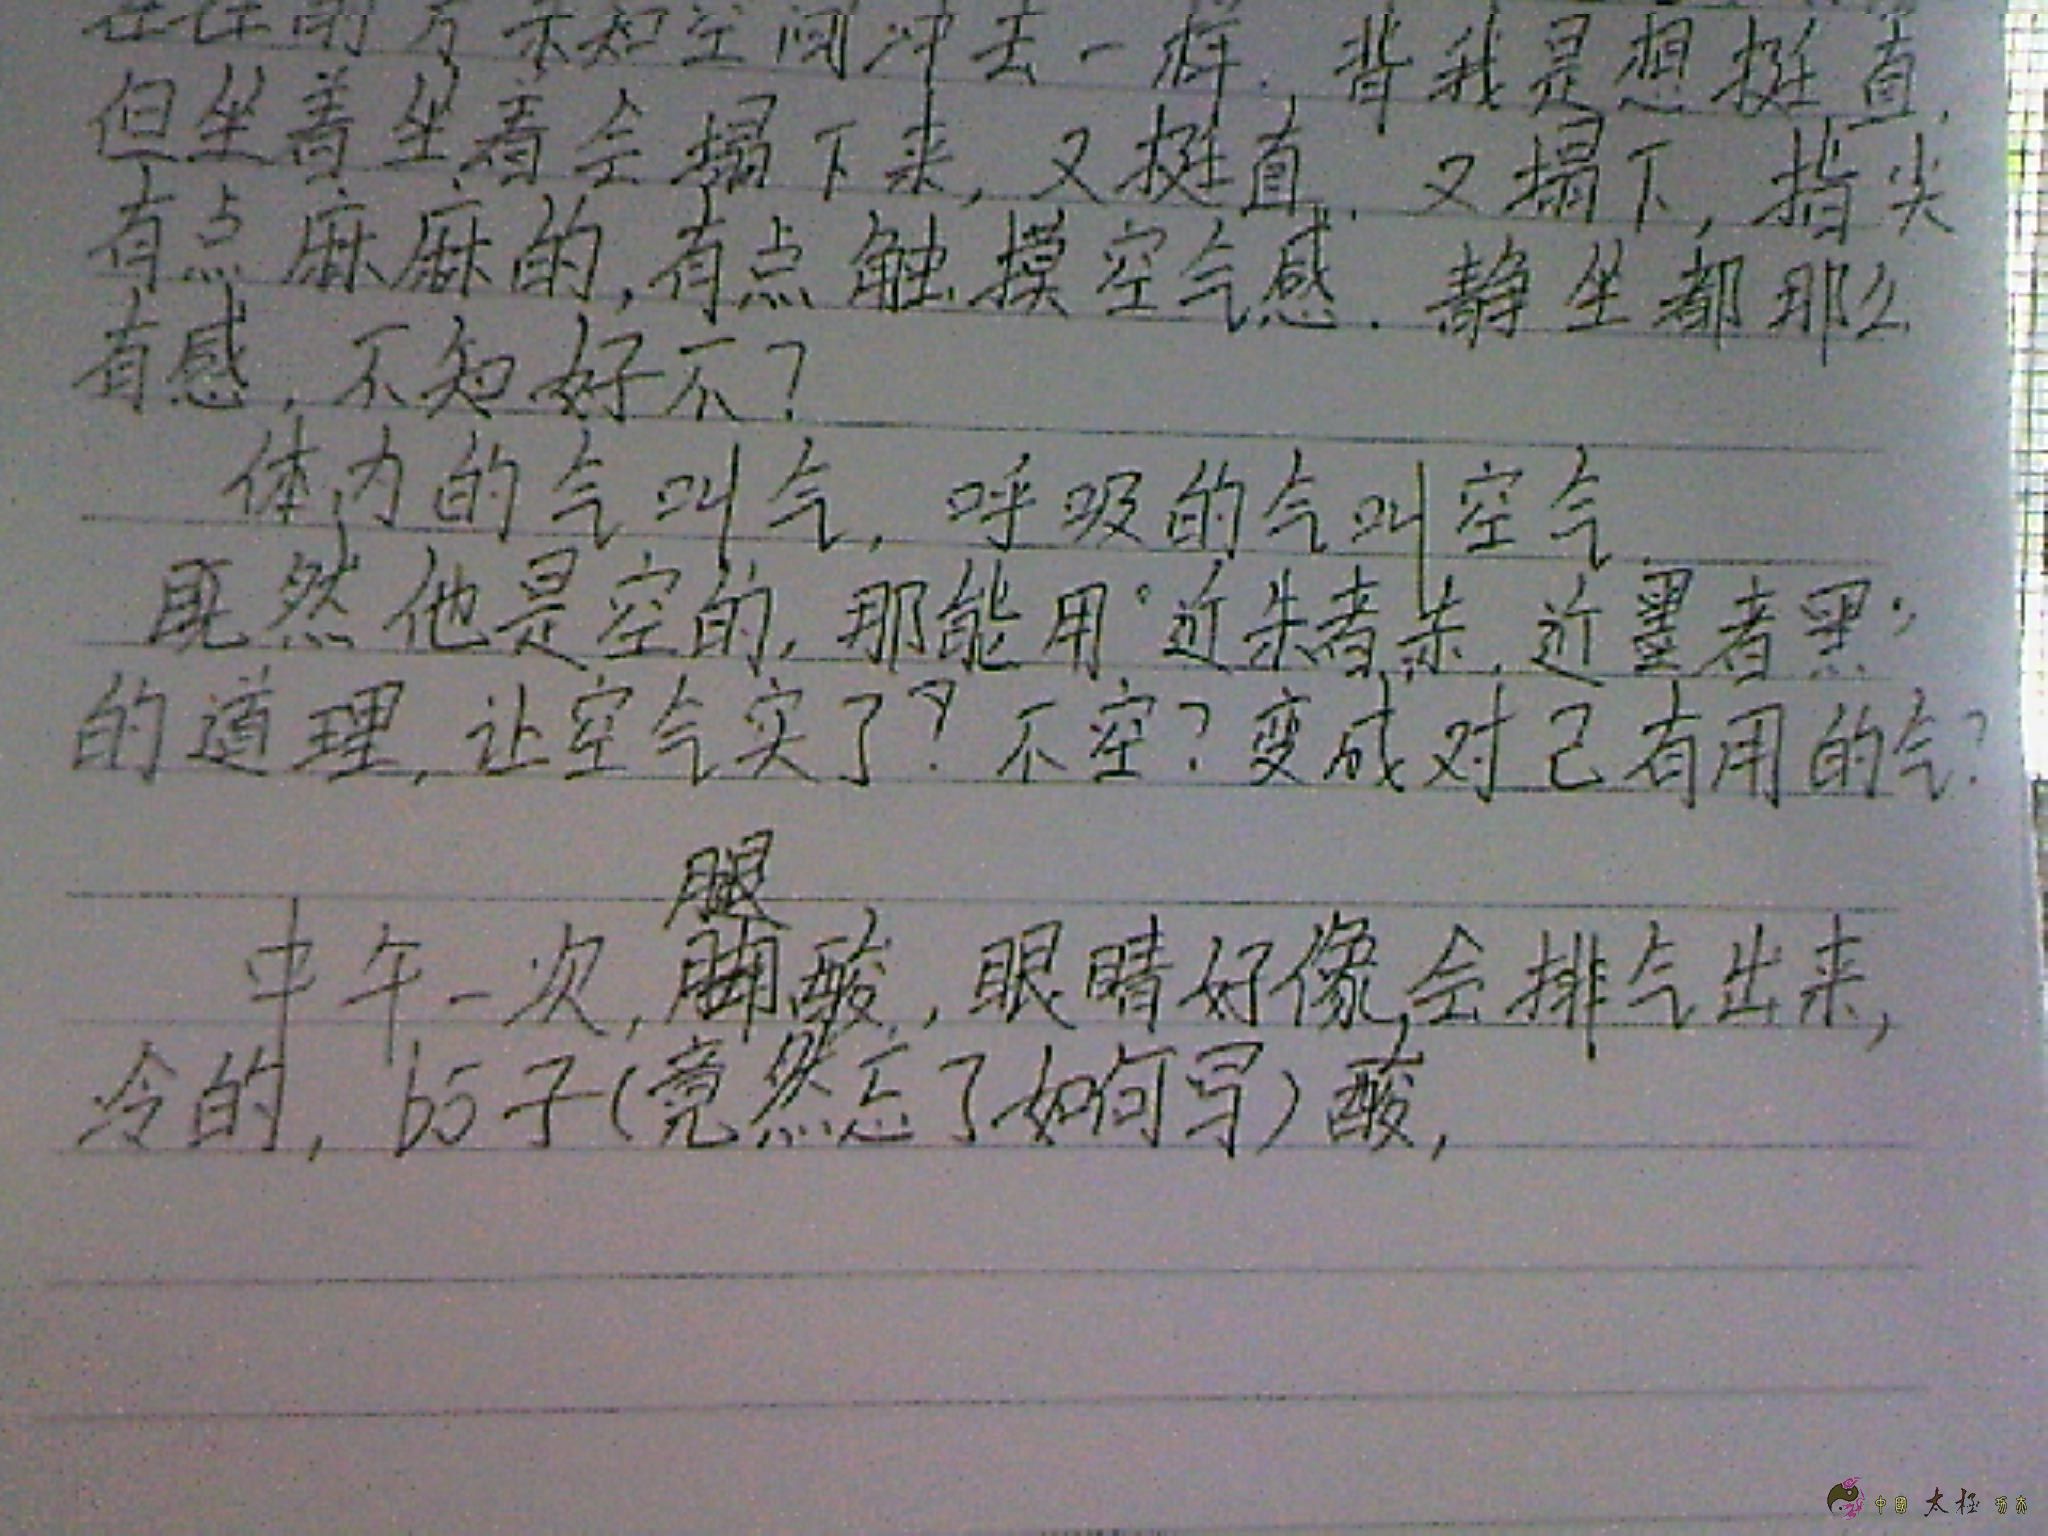 未知空间冲去一样.,背我是想挺直.
但坐着坐着会塌下来,又挺直.又塌下,指尖
有点麻麻的,有点触摸空气感.静坐都那么
有感,不知好不?
体内的气叫气,呼吸的气叫空气.
既然他是空的,那能用“近朱者朱.近墨者黑”
的道理,让空气实了?不空?变成对己有用的气?
腿
中午一次,脚酸,眼睛好像会排气出来,
冷的,bó子(竟然忘了如何写)酸,
中國 太極